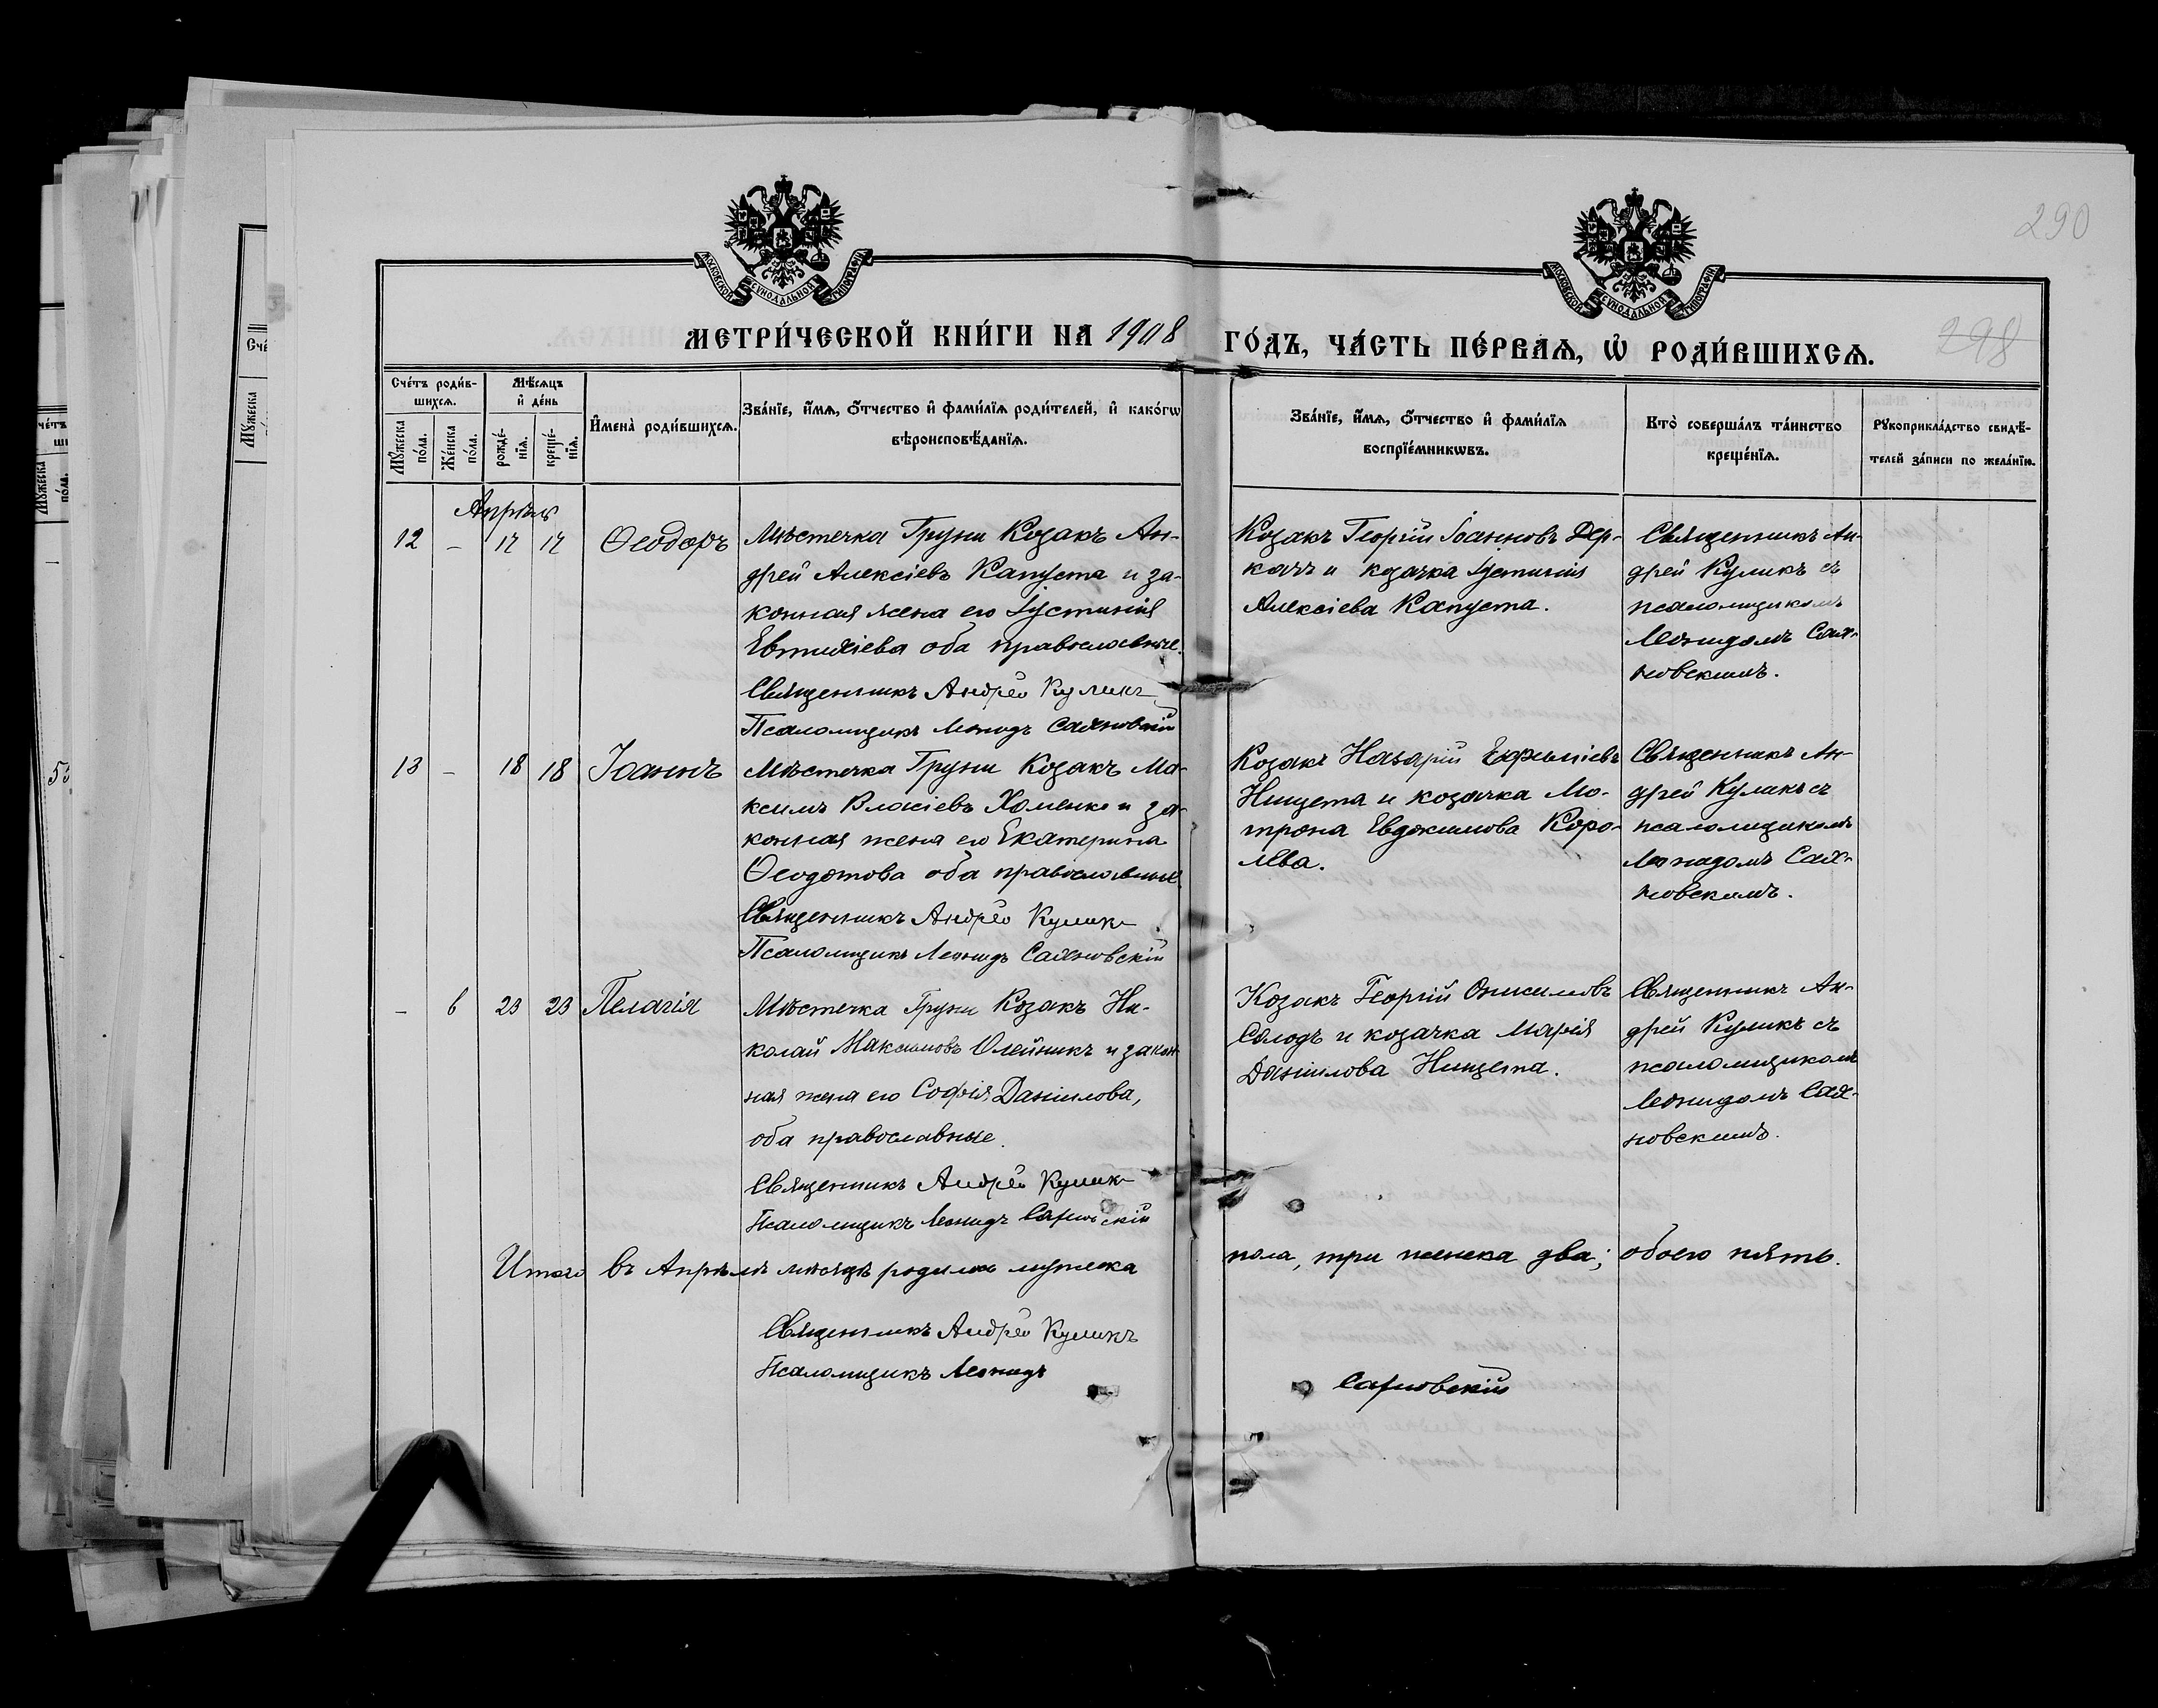 290
МОСКОВСКОЙ СѴНОДАЛЬНОЙ ТИПОГРАФІИ
МОСКОВСКОЙ СѴНОДАЛЬНОЙ ТИПОГРАФІИ
МЕТРИ́ЧЕСКОЙ КНИ́ГИ НА 1908 ГО́ДЪ, ЧА́СТЬ ПЕ́РВАѦ, Ѡ РОДИ́ВШИХСѦ.
298
Сче́тъ роди́в-
шихсѧ.
Мѣ́сѧцъ
и҆ де́нь
Мꙋ́жеска
по́ла.
Же́нска
по́ла.
рожде́-
нїѧ.
креще́-
нїѧ.
И҆мена̀ роди́вшихсѧ.
Зва́нїе, и҆́мѧ, ѻ҆́тчество и҆ фами́лїѧ роди́телей, и҆ како́гѡ
вѣроисповѣ́данїѧ.
Зва́нїе, и҆́мѧ, ѻ҆́тчество и҆ фами́лїѧ
воспрїе́мникѡвъ.
Кто̀ соверша́лъ та́инство
креще́нїѧ.
Рꙋкоприкла́дство свидѣ́-
телей за́писи по жела́нїю.
Апрѣль
12 – 17 17 Ѳеодоръ
Мѣстечка Груни Козакъ Ан-
дрей Алексіевъ Капуста и за-
конная жена его Іустинія
Евтихіева оба православные.
Священникъ Андрей Куликъ
Псаломщикъ Леонидъ Сахновскій
Козакъ Георгій Іоанновъ Дер-
качъ и козачка Іустинія
Алексіева Капуста.
Священникъ Ан-
дрей Куликъ съ
псаломщикомъ
Леонидомъ Сах-
новскимъ.
13 – 18 18 Іоаннъ
Мѣстечка Груни Козакъ Ма-
ксимъ Власіевъ Хоменко и за-
конная жена его Екатерина
Ѳеодотова оба православные.
Священникъ Андрей Куликъ
Псаломщикъ Леонидъ Сахновскій
Козакъ Назарій Ефиміевъ
Нищета и козачка Мо-
трона Евдокимова Коро-
лева.
Священникъ Ан-
дрей Куликъ съ
псаломщикомъ
Леонидомъ Сах-
новскимъ.
– 6 23 23 Пелагія
Мѣстечка Груни Козакъ Ни-
колай Максимовъ Олейникъ и закон-
ная жена его Софія Даніилова,
оба православные.
Священникъ Андрей Куликъ
Псаломщикъ Леонидъ Сахновскій
Козакъ Георгій Онисимовъ
Солодъ и козачка Марія
Даніилова Нищета.
Священникъ Ан-
дрей Куликъ съ
псаломщикомъ
Леонидомъ Сах-
новскимъ.
Итого въ Апрѣлѣ мѣсяцѣ родилось мужска пола, три женска два; обоего пять.
Священникъ Андрей Куликъ
Псаломщикъ Леонидъ Сахновскій